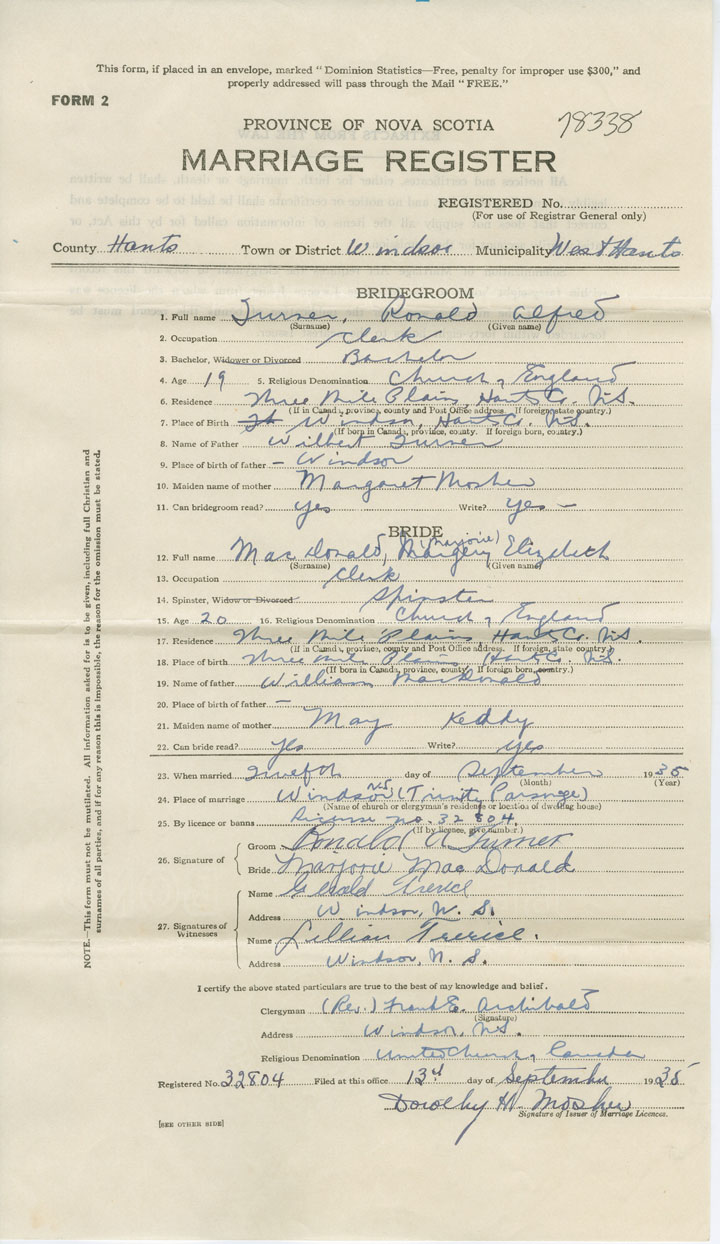 This form, if placed in an envelope, marked "Dominion Statistics—Free, penalty for improper use $300," and
properly addressed will pass through the Mail "FREE."
FORM 2
PROVINCE OF NOVA SCOTIA 78338
MARRIAGE REGISTER
REGISTERED No.
(For use of Registrar General only)
County Hants Town or District Windsor Municipality West Hants
BRIDEGROOM
1. Full name Turner, Ronald Alfred
(Surname) (Given name)
2. Occupation Clerk
3. Bachelor, Widower or Divorced Bachelor
4. Age 19 5. Religious Denomination Church of England
6. Residence Three Mile Plains, Hants Co. N.S.
(If in Canada, province, county and Post Office address. If foreign state country.)
7. Place of Birth Windsor, Hants Co. N.S.
(If born in Canada, province, county. If foreign born, country.)
8. Name of Father Wilbert Turner
9. Place of birth of father – Windsor
10. Maiden name of mother Margaret Mosher
11. Can bridegroom read? yes Write? yes –
BRIDE
(Marjorie)
12. Full name MacDonald, Margery Elizabeth
(Surname) (Given name)
13. Occupation Clerk
14. Spinster, Widow or Divorced Spinster
15. Age 20 16. Religious Denomination Church of England
17. Residence Three Mile Plains, Hants Co. N.S.
(If in Canada, province, county and Post Office address. If foreign, state country)
18. Place of birth Three Mile Plains, Hants Co. N.S.
(If born in Canada, province, county? If foreign born, country.)
19. Name of father William MacDonald
20. Place of birth of father –
21. Maiden name of mother May Keddy
22. Can bride read? yes Write? yes
23. When married Twelfth day of September 1935
(Month) (Year)
24. Place of marriage Windsor N.S. (Trinity Parsonage)
(Name of church or clergyman's residence or location of dwelling house)
25. By licence or banns License no. 32804.
(If by licence, give number.)
26. Signature of Groom Ronald A Turner
Bride Marjorie MacDonald
27. Signatures of Witnesses
Name Trerice
Address Windsor, N.S.
Name Lillian Trerice.
Address Windsor, N.S.
I certify the above stated particulars are true to the best of my knowledge and belief.
Clergyman (Rev.) Frank E. Archibald
(Signature)
Address Windsor, N.S.
Religious Denomination United Church of Canada
Registered No. 32804 Filed at this office 13th day of September 1935
Dorothy H. Mosher
Signature of Issuer of Marriage Licences.
[SEE OTHER SIDE]
NOTE.—This form must not be mutilated. All information asked for is to be given, including full Christian and
surnames of all parties, and if for any reason this is impossible, the reason for the omission must be stated.